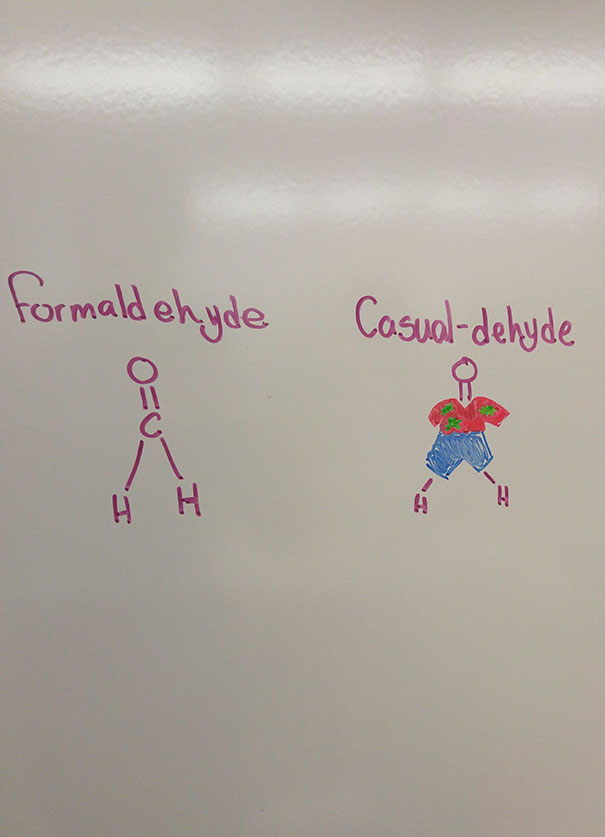 Formaldehyde
O
C
H H
Casual-dehyde
O
H H